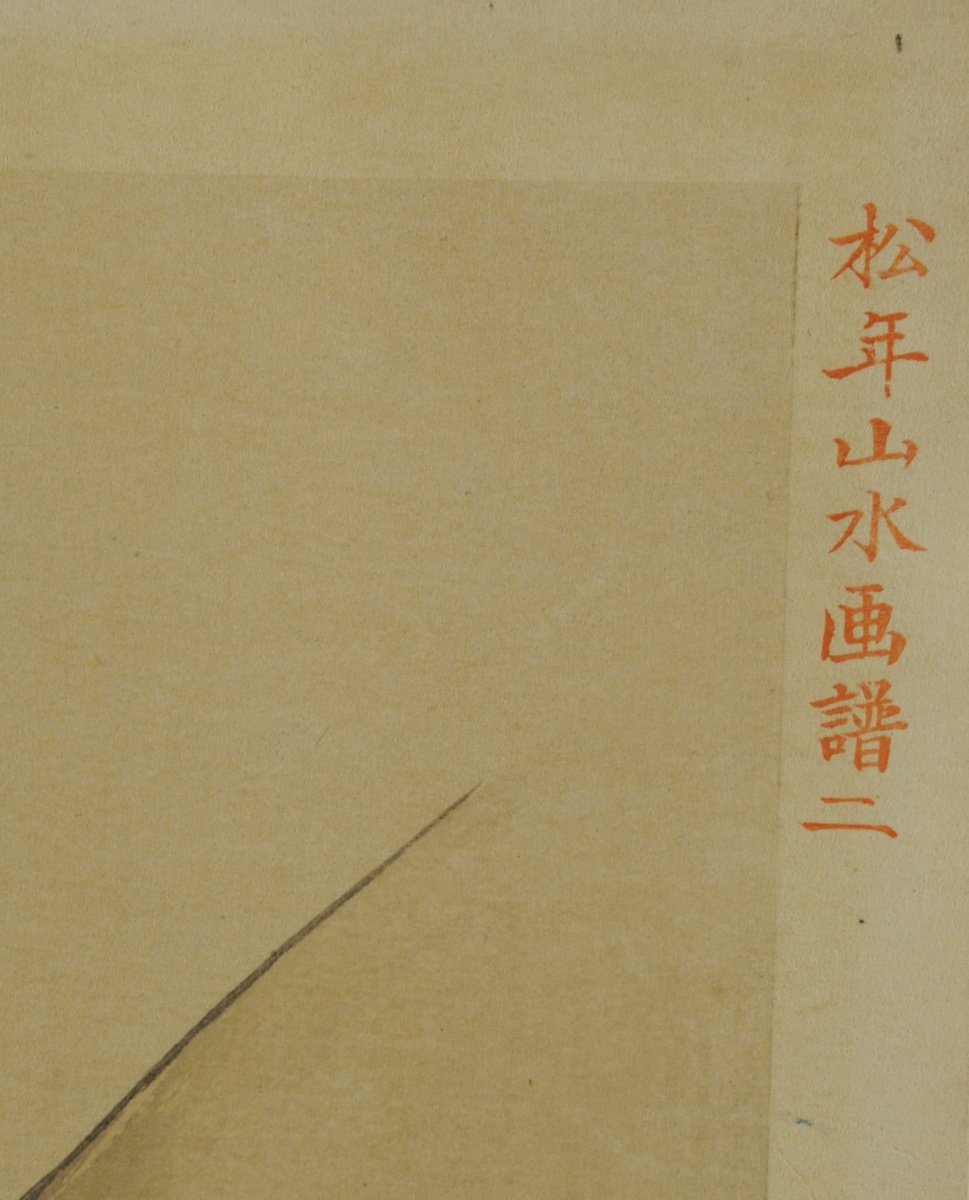 松年山水画譜二